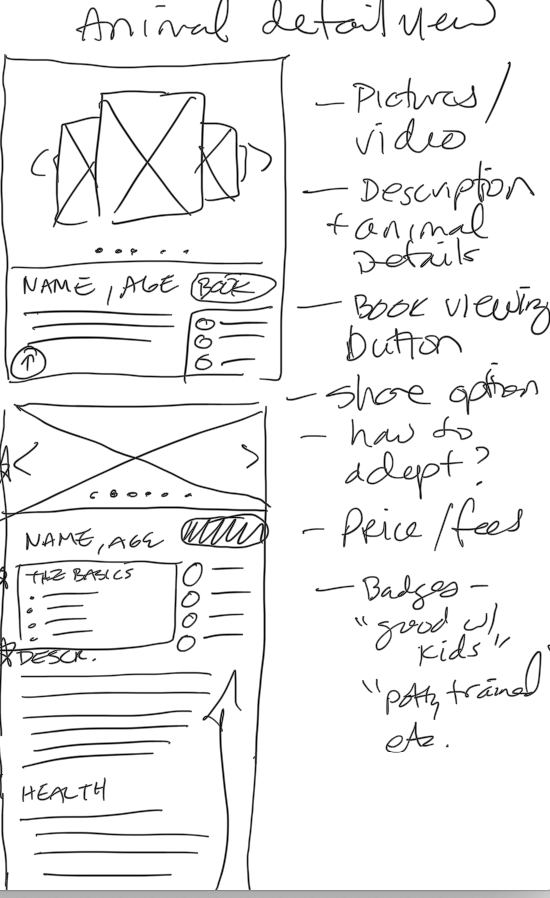 Animal detail view
NAME, AGE BOOK
NAME, AGE
THE BASICS
DESCR.
HEALTH
- Pictures/
video
- Description
+ animal
Details
- Book viewing
button
- share option
- how to
adopt?
- Price/fees
- Badges -
"good w/
kids"
"potty trained"
etc.